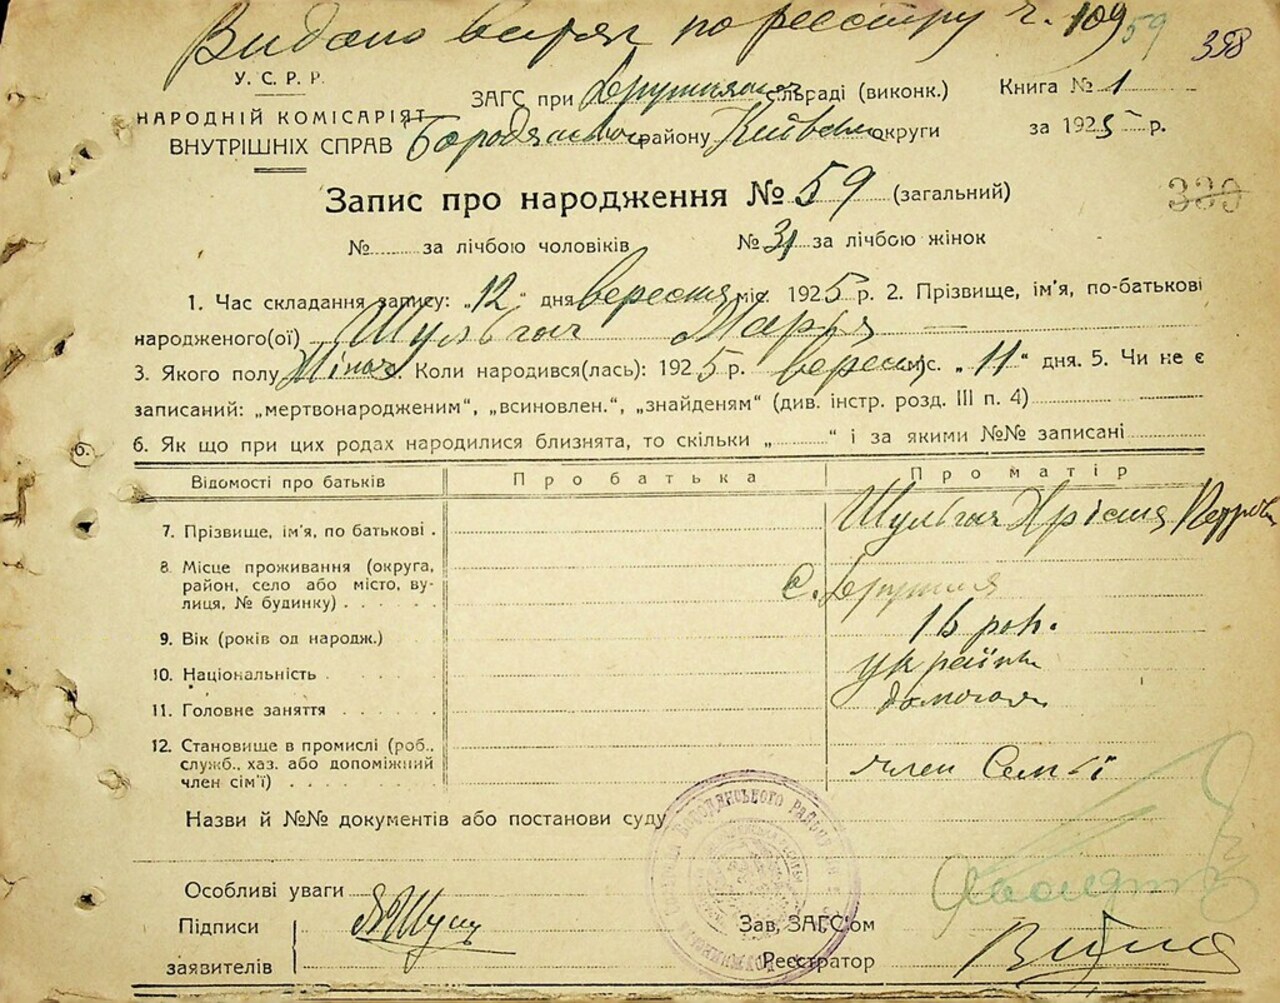 Видано витяг по реєстру ч. 109 59 358
У. С. Р. Р.
НАРОДНІЙ КОМІСАРІЯТ
ВНУТРІШНІХ СПРАВ
ЗАГС при Дружнянск сільраді (виконк.) Книга № 1
району округи за 1925 р.
Запис про народження № 59 (загальний)
330
№ за лічбою чоловіків № 31 за лічбою жінок
1. Час складання запису: „12" дня вересня міс. 1925 р. 2. Прізвище, ім'я, по-батькові
народженого(ої) Шульгач Марія —
3. Якого полу Жіноч. Коли народився(лась): 1925 р. вересня міс. „11" дня. 5. Чи не є
записаний: „мертвонародженим", „всиновлен.", „знайденям" (див. інстр. розд. III п. 4)
6. Як що при цих родах народилися близнята, то скільки „ " і за якими №№ записані
б.
Відомості про батьків Про батька Про матір
7. Прізвище, ім'я, по батькові . Шульгач Хрістя
8. Місце проживання (округа,
район, село або місто, ву-
лиця, № будинку) . . . . . с. Дружня
9. Вік (років од народж.) рок.
10. Національність . українк
11. Головне заняття . . . . .
12. Становище в промислі (роб.,
служб., хаз. або допоміжний
член сім'ї) . . . . . . . . член Семьї
Назви й №№ документів або постанови суду
Особливі уваги
Підписи
заявителів
Зав, ЗАГС'ом
Реєстратор
Бородянського району